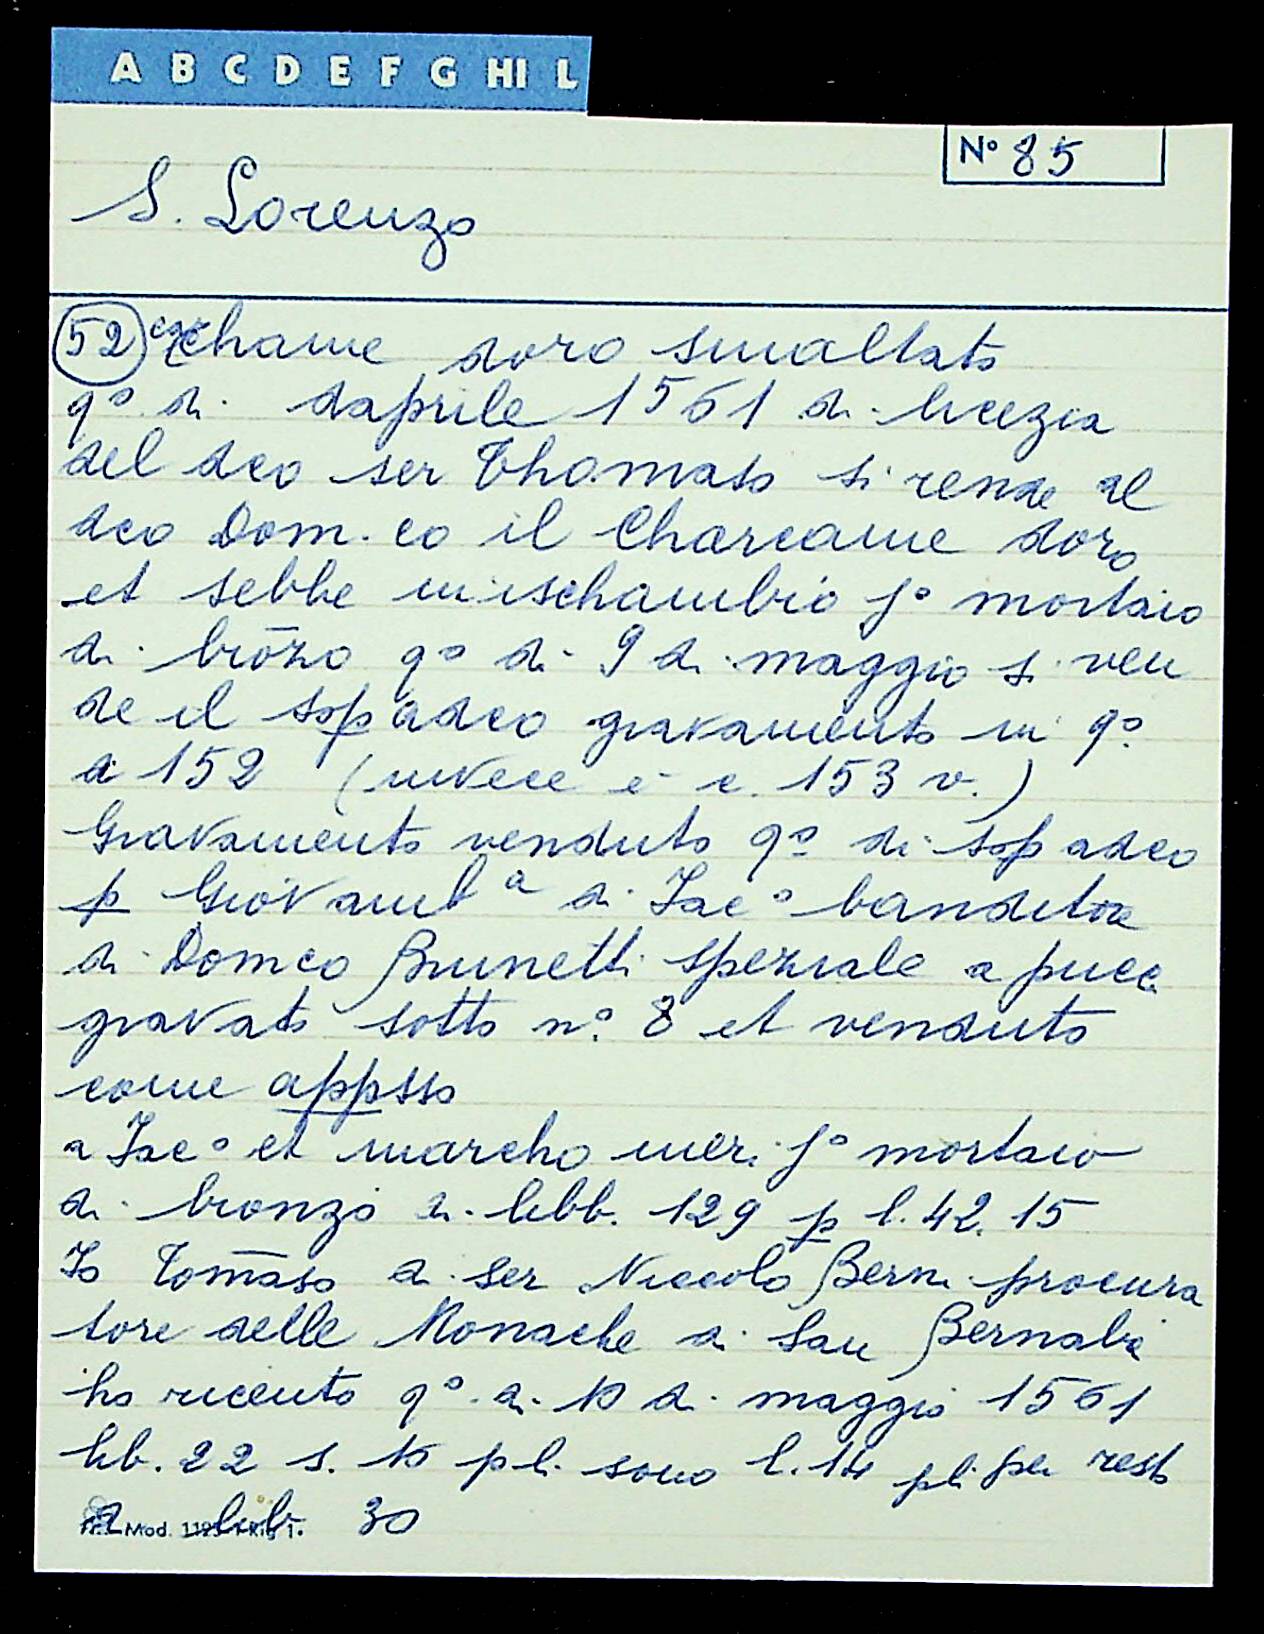 A B C D E F G HI L
N° 85
S. Lorenzo
52 chame doro smaltato
q° di daprile 1561 di licezia
del deo ser Thomaso si rende al
deo Dom.co il Charcame doro
et sebbe inischambio j° mortaio
di brōzo q° di 9 di maggio si ven
de il sopadeo gravamento in q°.
a 152 (invece è c. 153 v.)
Gravamento venduto q° di sopadeo
p Giovamb a di Jac° banditore
di Domco Brunetti speziale a pucc.
gravato sotto n° 8 et venduto
come appsso
a Jac° et marcho meri j° mortaio
di bronzo di libb. 129 p l. 42. 15
Io Tomāso di ser Niccolo Berni procura
tore delle Monache di San Bernaba
ho riceuto q° di 10 di maggio 1561
lib. 22 s. 10 pli sono l. 14 pli per resto
di lib. 30
Mod.